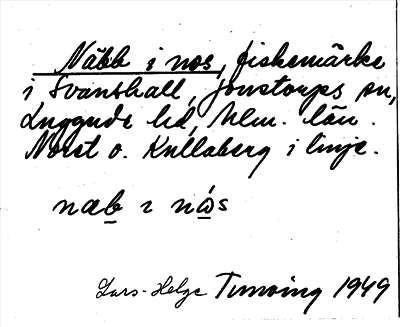 Näbb i nos, fiskemärke
i Svanshall, Jonstorps sn,
Luggude hd, Mlm. län.
Norst o. Kullaberg i linje.
næb ı nɷs
Lars-Helge Tunving 1949